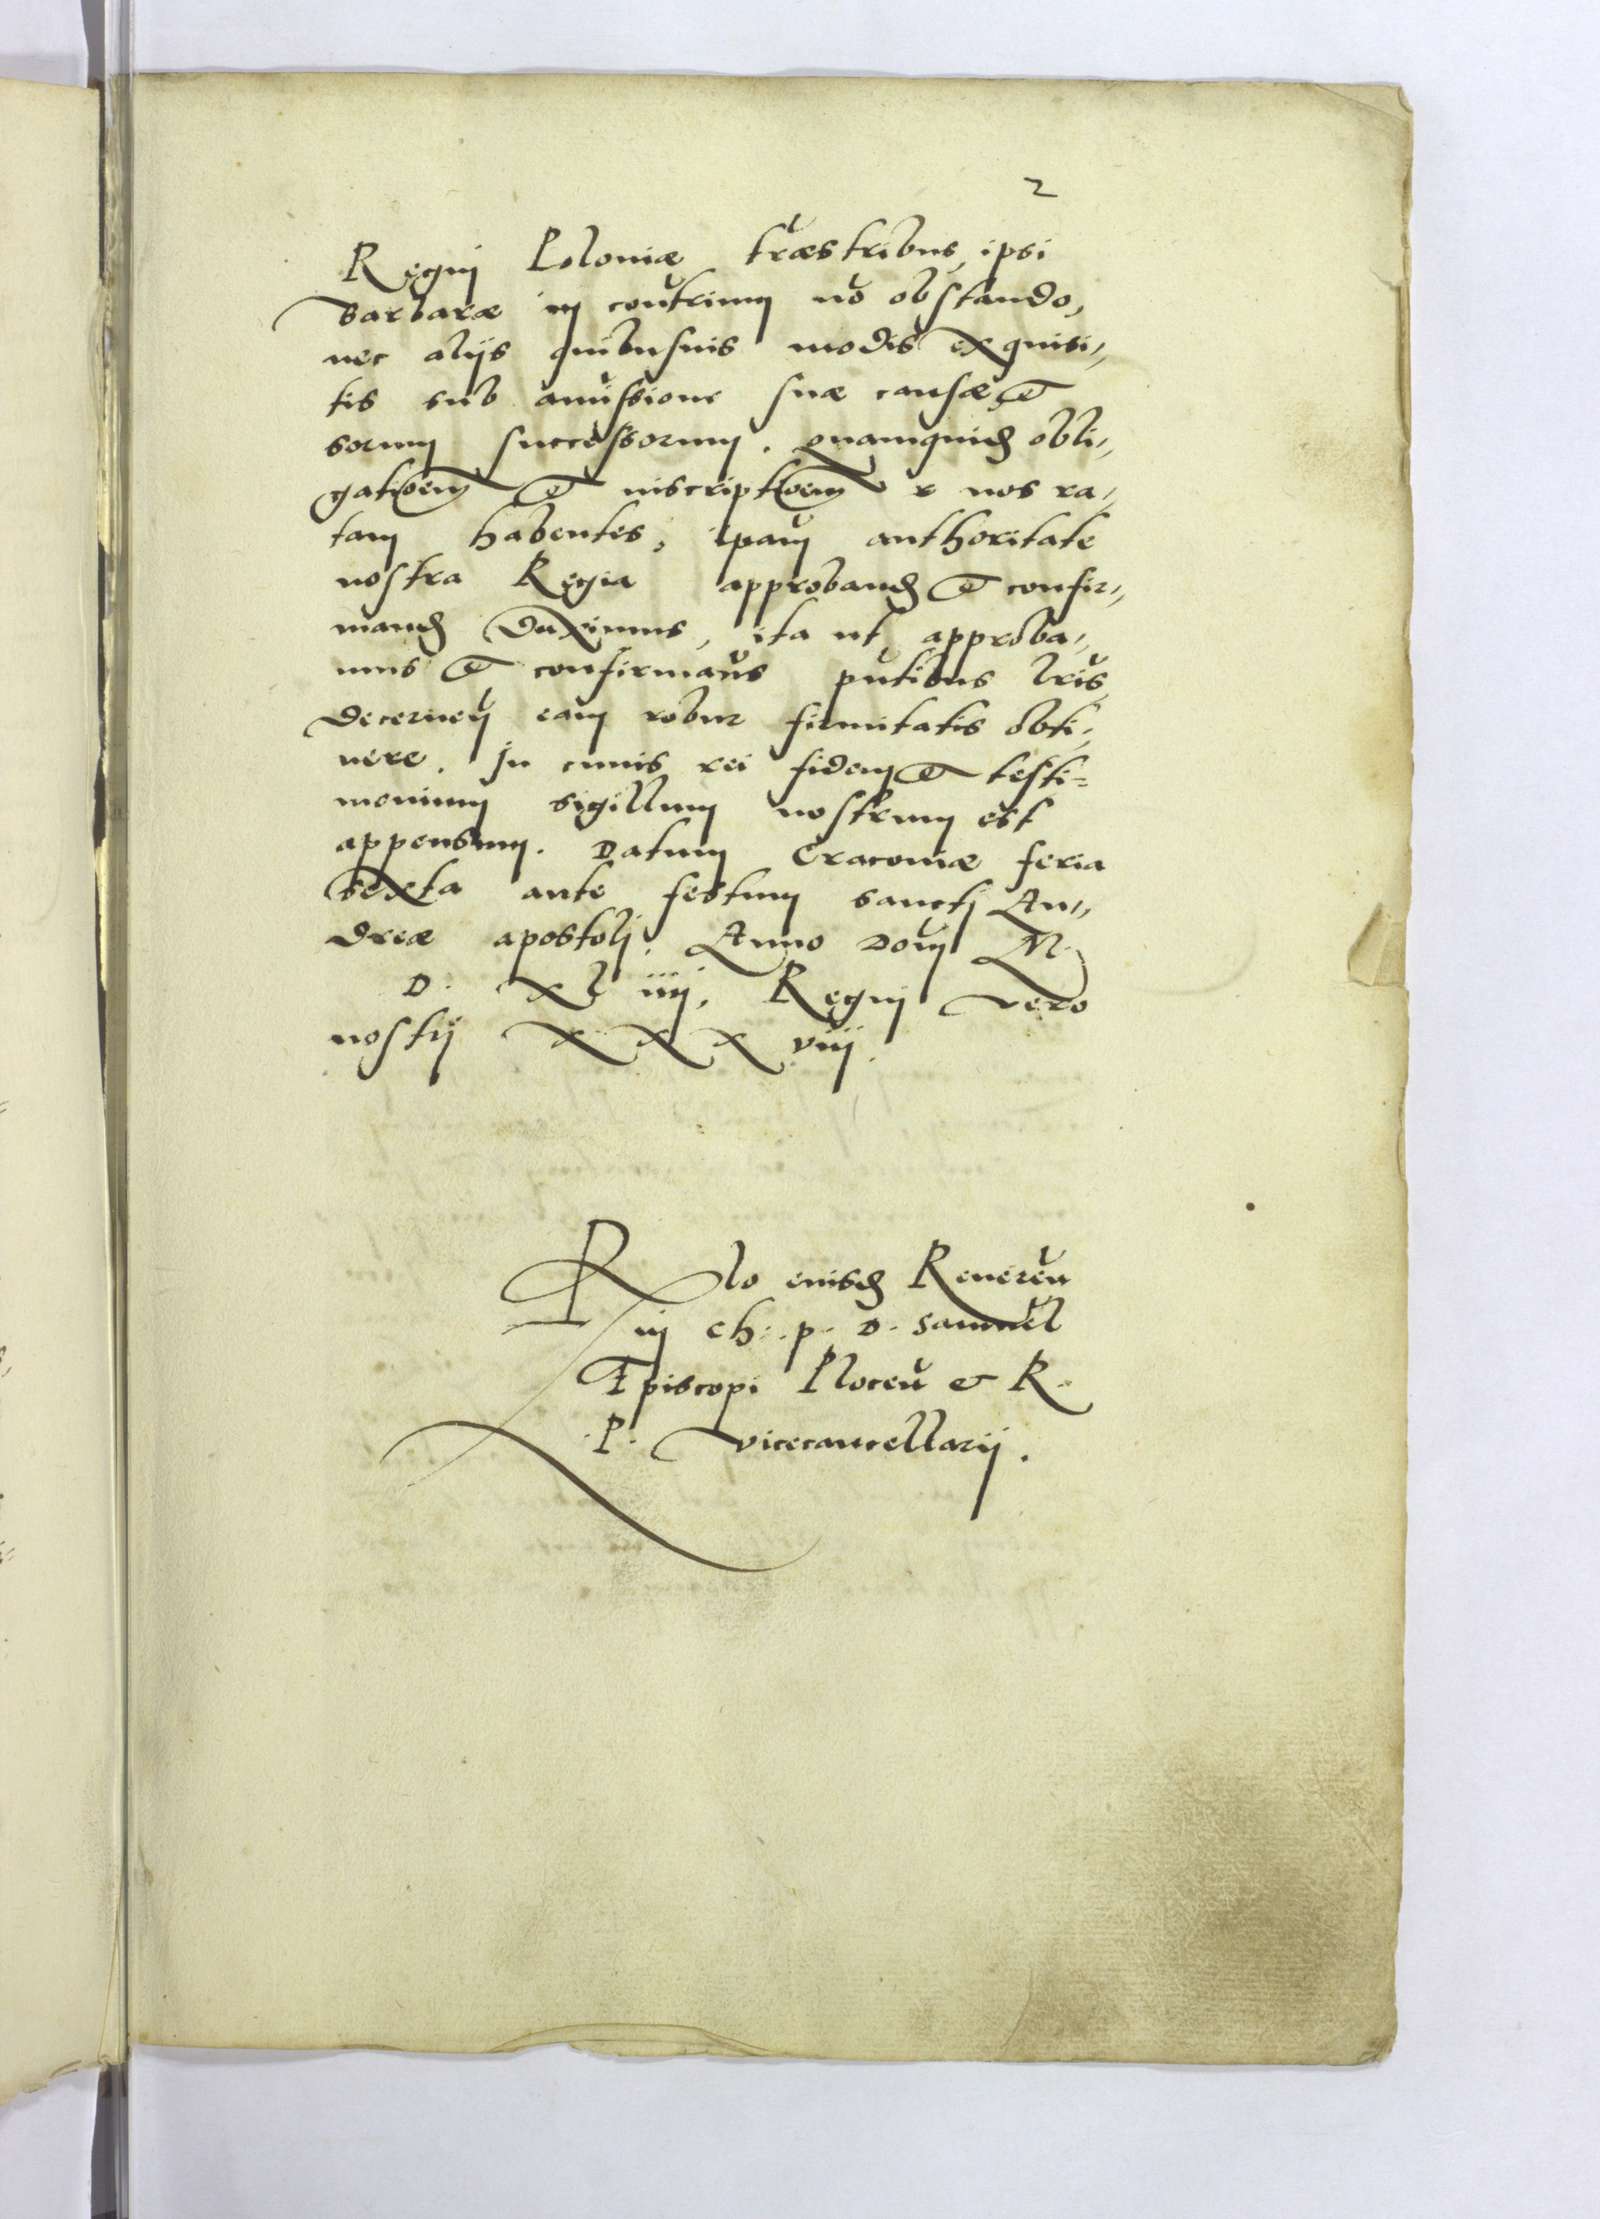 2
Regnj Poloniæ træstribus, ipsi
Barbaræ in contrium nō obstando,
nec alijs quibusuis modis exquisi,,
tis sub amissione suæ causæ et
sorum successorum. Quamquid obli,,
gatioem et inscriptioem r nos ra,,
tam habentes, ipam authoritate
nostra Regia approband et confir,,
mand duximus, ita ut approba,,
mus et confirmaus pntibus lris
decernen eam robur firmitatis obti,,
nere. In cuius rei fidem et testi=
monium sigillum nostrum est
appensum. Datum Cracouiæ feria
sexta ante festum sanctj An,,
dreæ apostolj. Anno Donj M.
D. XL iiij, Regnj vero
nostrj XXX viij.
Rlo eiusd Reueren
in Ch: p. D. Samuel
Episcopi Plocen & R.
P. vicecancellarij.